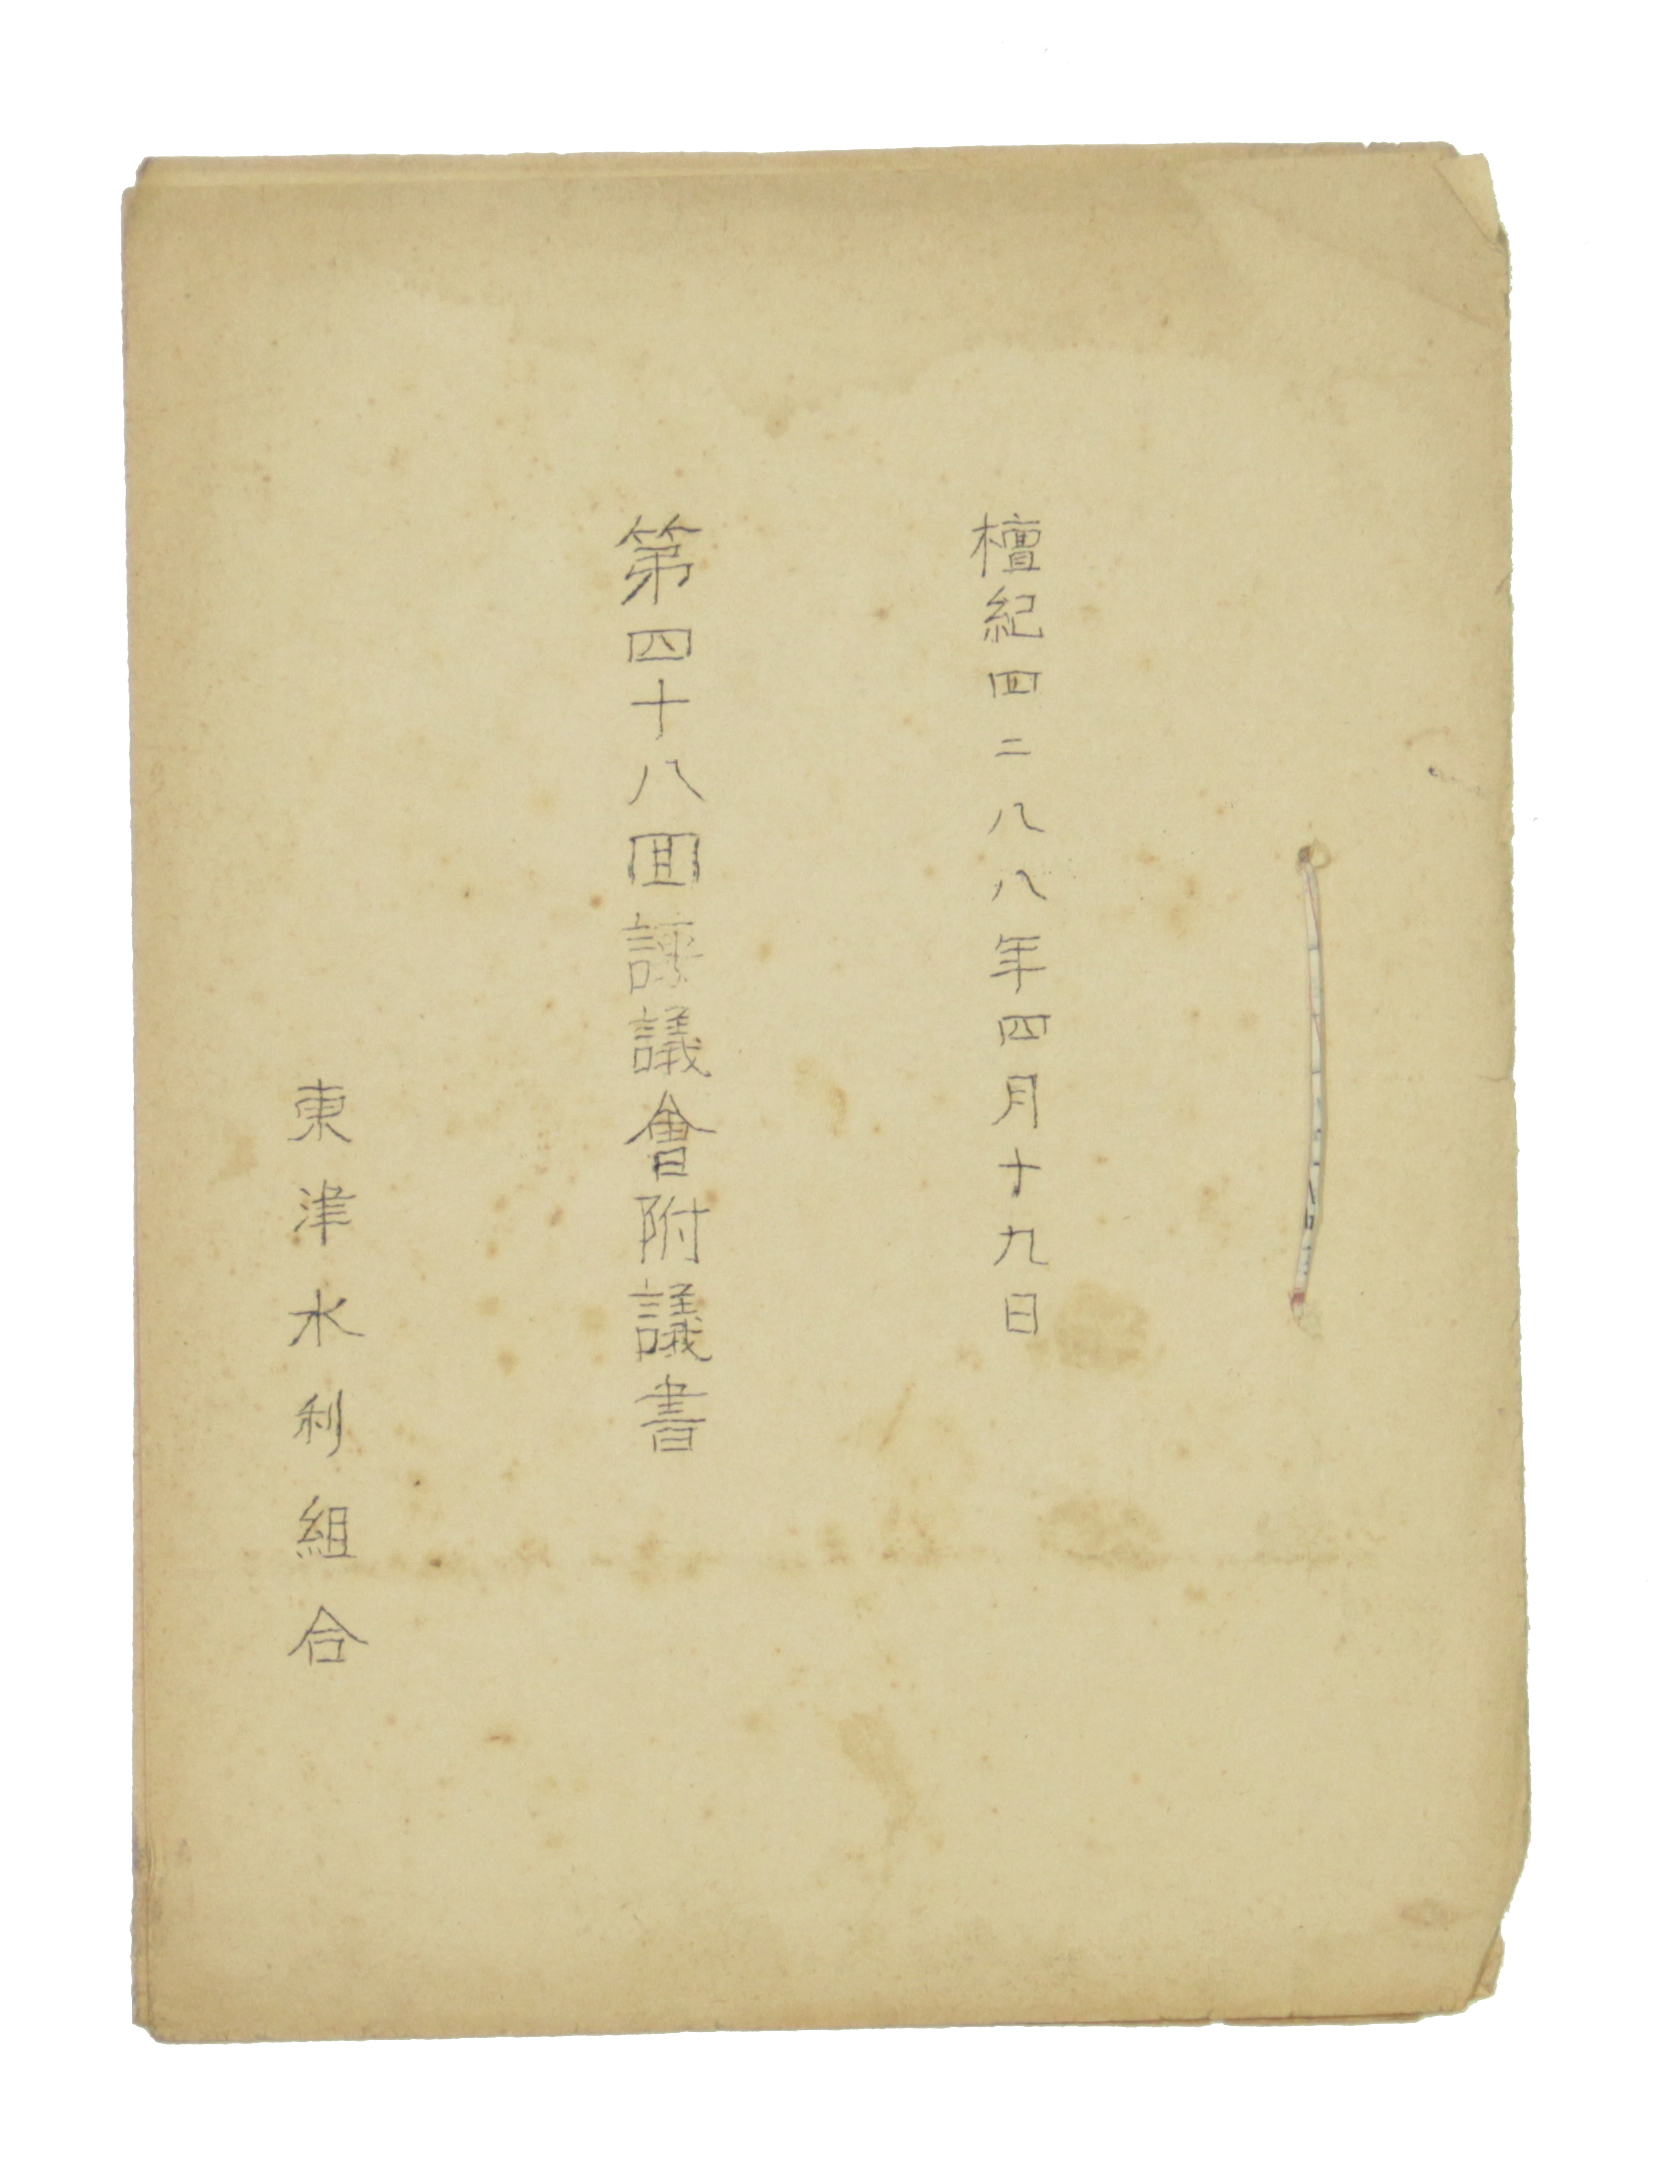 檀紀四二八八年四月十九日
第四十八回評議會附議書
東津水利組合